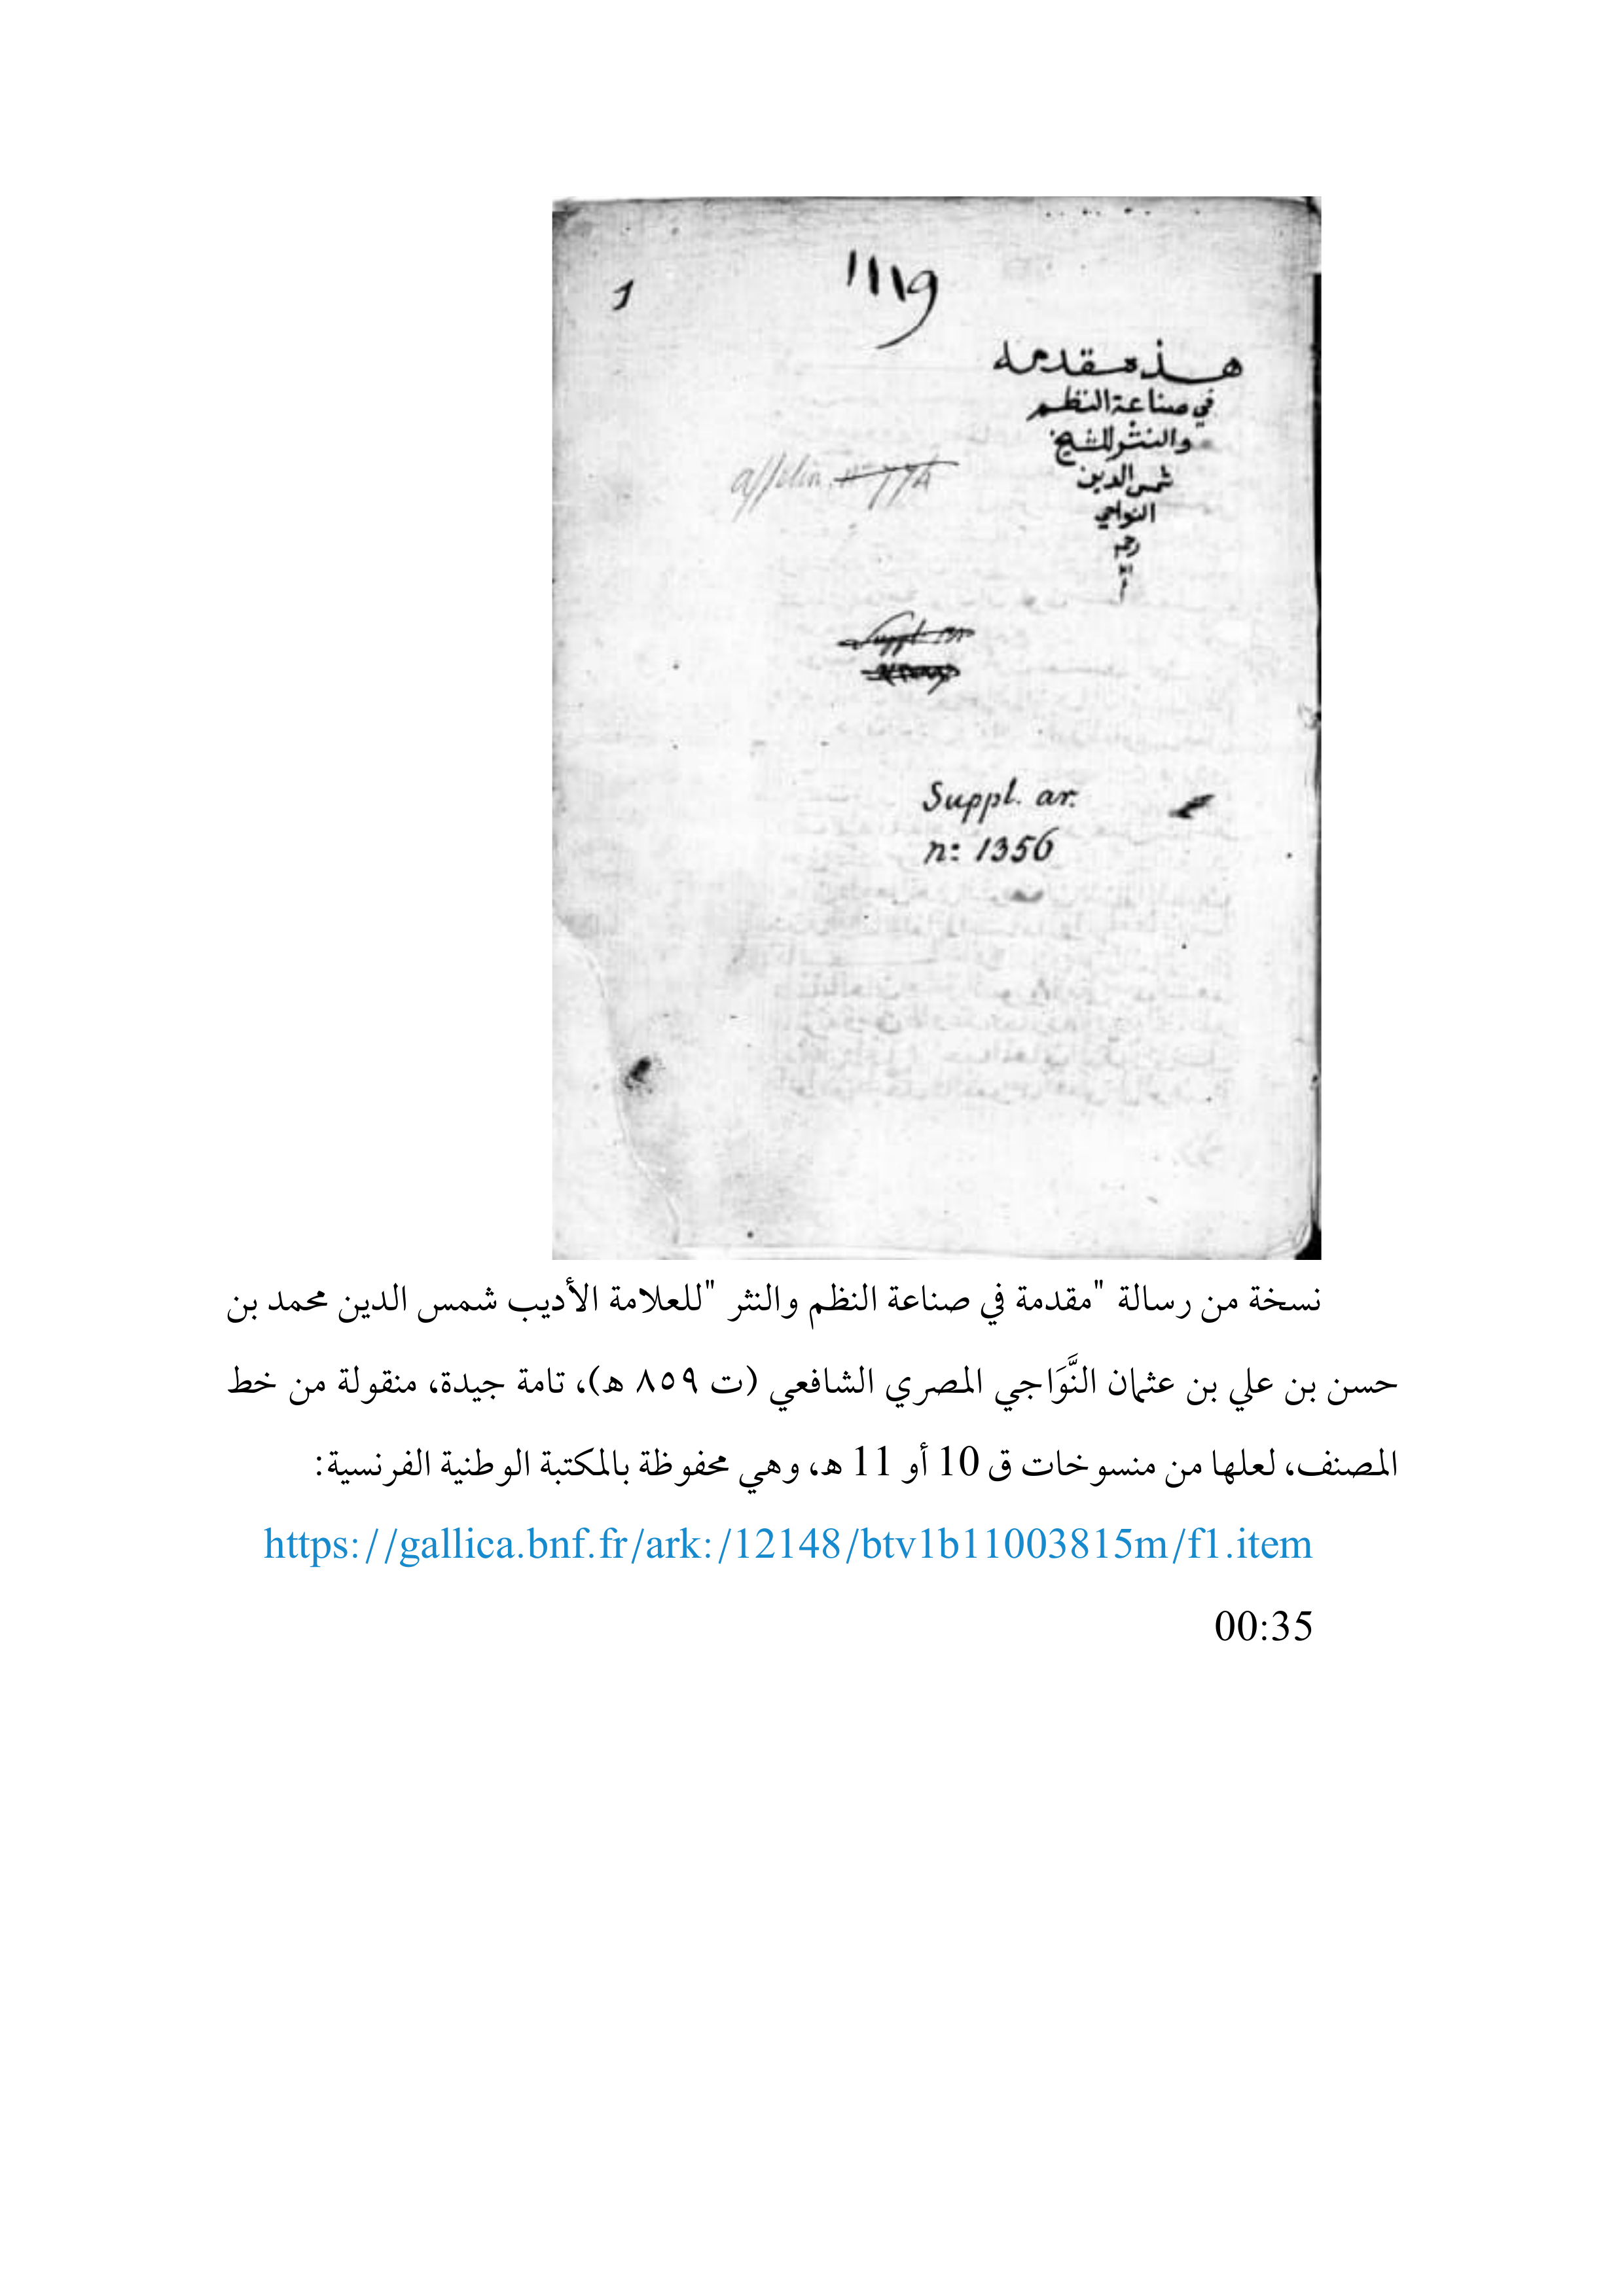 1
1119
هذه مقدمه
في صناعة النظم
والنثر للشيخ
شمس الدين
النواجي
رحمه
الله
Suppl. ar.
n: 1356
نسخة من رسالة "مقدمة في صناعة النظم والنثر "للعلامة الأديب شمس الدين محمد بن
حسن بن علي بن عثمان النَّوَاجي المصري الشافعي (ت ٨٥٩ هـ)، تامة جيدة، منقولة من خط
المصنف، لعلها من منسوخات ق 10 أو 11 هـ، وهي محفوظة بالمكتبة الوطنية الفرنسية:
https://gallica.bnf.fr/ark:/12148/btv1b11003815m/f1.item
00:35